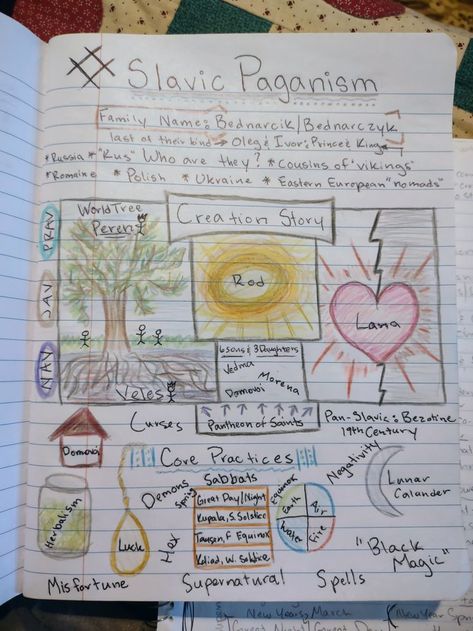 Slavic Paganism
Family Name: Bednarcik/Bednarczyk
last of their kind → Oleg & Ivor: Prince & King
*Russia *"Rus" Who are they? *cousins of 'vikings'
*Romaine * Polish * Ukraine * Eastern European "nomads"
PRAV
JAV
NAV
World Tree
Peren
Veles
Creation Story
Rod
Lana
6 sons & 3 Daughters
Vedma
Domovoi
Morena
Pantheon of Saints
Curses
Pan-Slavic: Bezotine
19th Century
Domova
Core Practices
Negativity
Demons
Sabbats
Spring
Equinox
Great Day/Night
Kupala, S. Solstice
Tausen, F Equinox
Koliad, W. Solstice
Earth
Air
Water
Fire
Lunar
Calander
Herbalism
Luck
Hex
"Black
Magic"
Misfortune
Supernatural
Spells
New Years, March
New Year